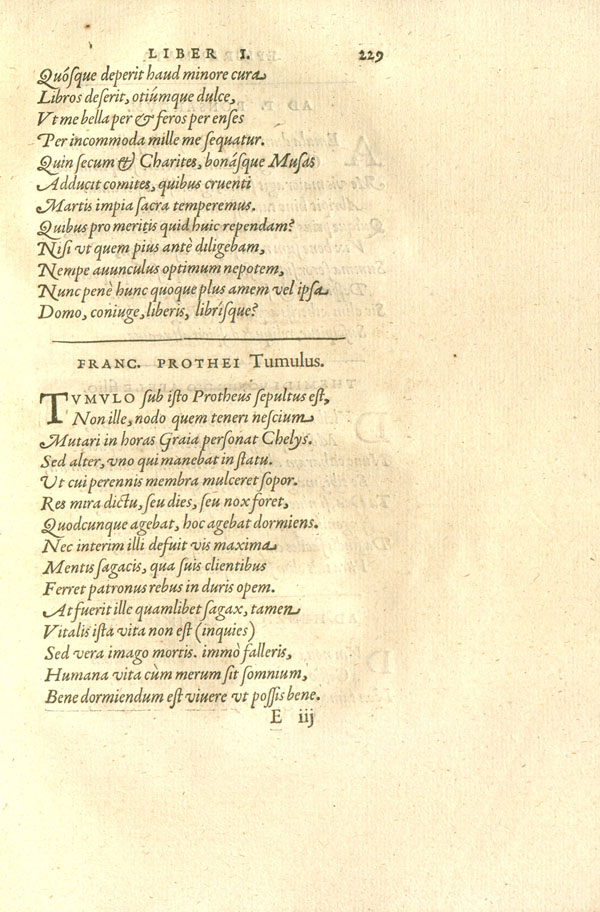 LIBER I. 229
Quósque deperit haud minore cura
Libros deserit, otiúmque dulce,
Vt me bella per & feros per enses
Per incommoda mille me sequatur.
Quin secum & Charites, bonásque Musas
Adducit comites, quibus cruenti
Martis impia sacra temperemus.
Quibus pro meritis quid huic rependam?
Nisi vt quem pius antè diligebam,
Nempe auunculus optimum nepotem,
Nunc penè hunc quoque plus amem vel ipsa
Domo, coniuge, liberis, librísque?
FRANC. PROTHEI Tumulus.
TVMVLO sub isto Protheus sepultus est,
Non ille, nodo quem teneri nescium
Mutari in horas Graia personat Chelys.
Sed alter, vno qui manebat in statu.
Vt cui perennis membra mulceret sopor.
Res mira dictu, seu dies, seu nox foret,
Quodcunque agebat, hoc agebat dormiens.
Nec interim illi defuit vis maxima
Mentis sagacis, qua suis clientibus
Ferret patronus rebus in duris opem.
At fuerit ille quamlibet sagax, tamen
Vitalis ista vita non est (inquies)
Sed vera imago mortis. immò falleris,
Humana vita cùm merum sit somnium,
Bene dormiendum est viuere vt possis bene.
E iij